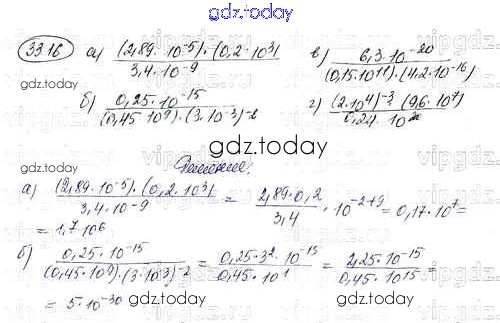 gdz.today
3316 а) (2,89·10^-5)·(0,2·10^3) / 3,4·10^-9 в) 6,3·10^-20 / (0,15·10^11)·(4,2·10^-16)
gdz.today
б) 0,25·10^-15 / (0,45·10^9)·(3·10^-3)^-2 г) (2·10^4)^-3·(9,6·10^7) / 0,24·10^20
gdz.today
Решение:
vipgdz
а) (2,89·10^-5)·(0,2·10^3) / 3,4·10^-9 = 2,89·0,2 / 3,4 · 10^-2+9 = 0,17·10^7 =
= 1,7·10^6
б) 0,25·10^-15 / (0,45·10^9)·(3·10^-3)^-2 = 0,25·3^2·10^-15 / 0,45·10^1 = 2,25·10^-15 / 0,45·10^15 =
= 5·10^-30
gdz.today
gdz.today